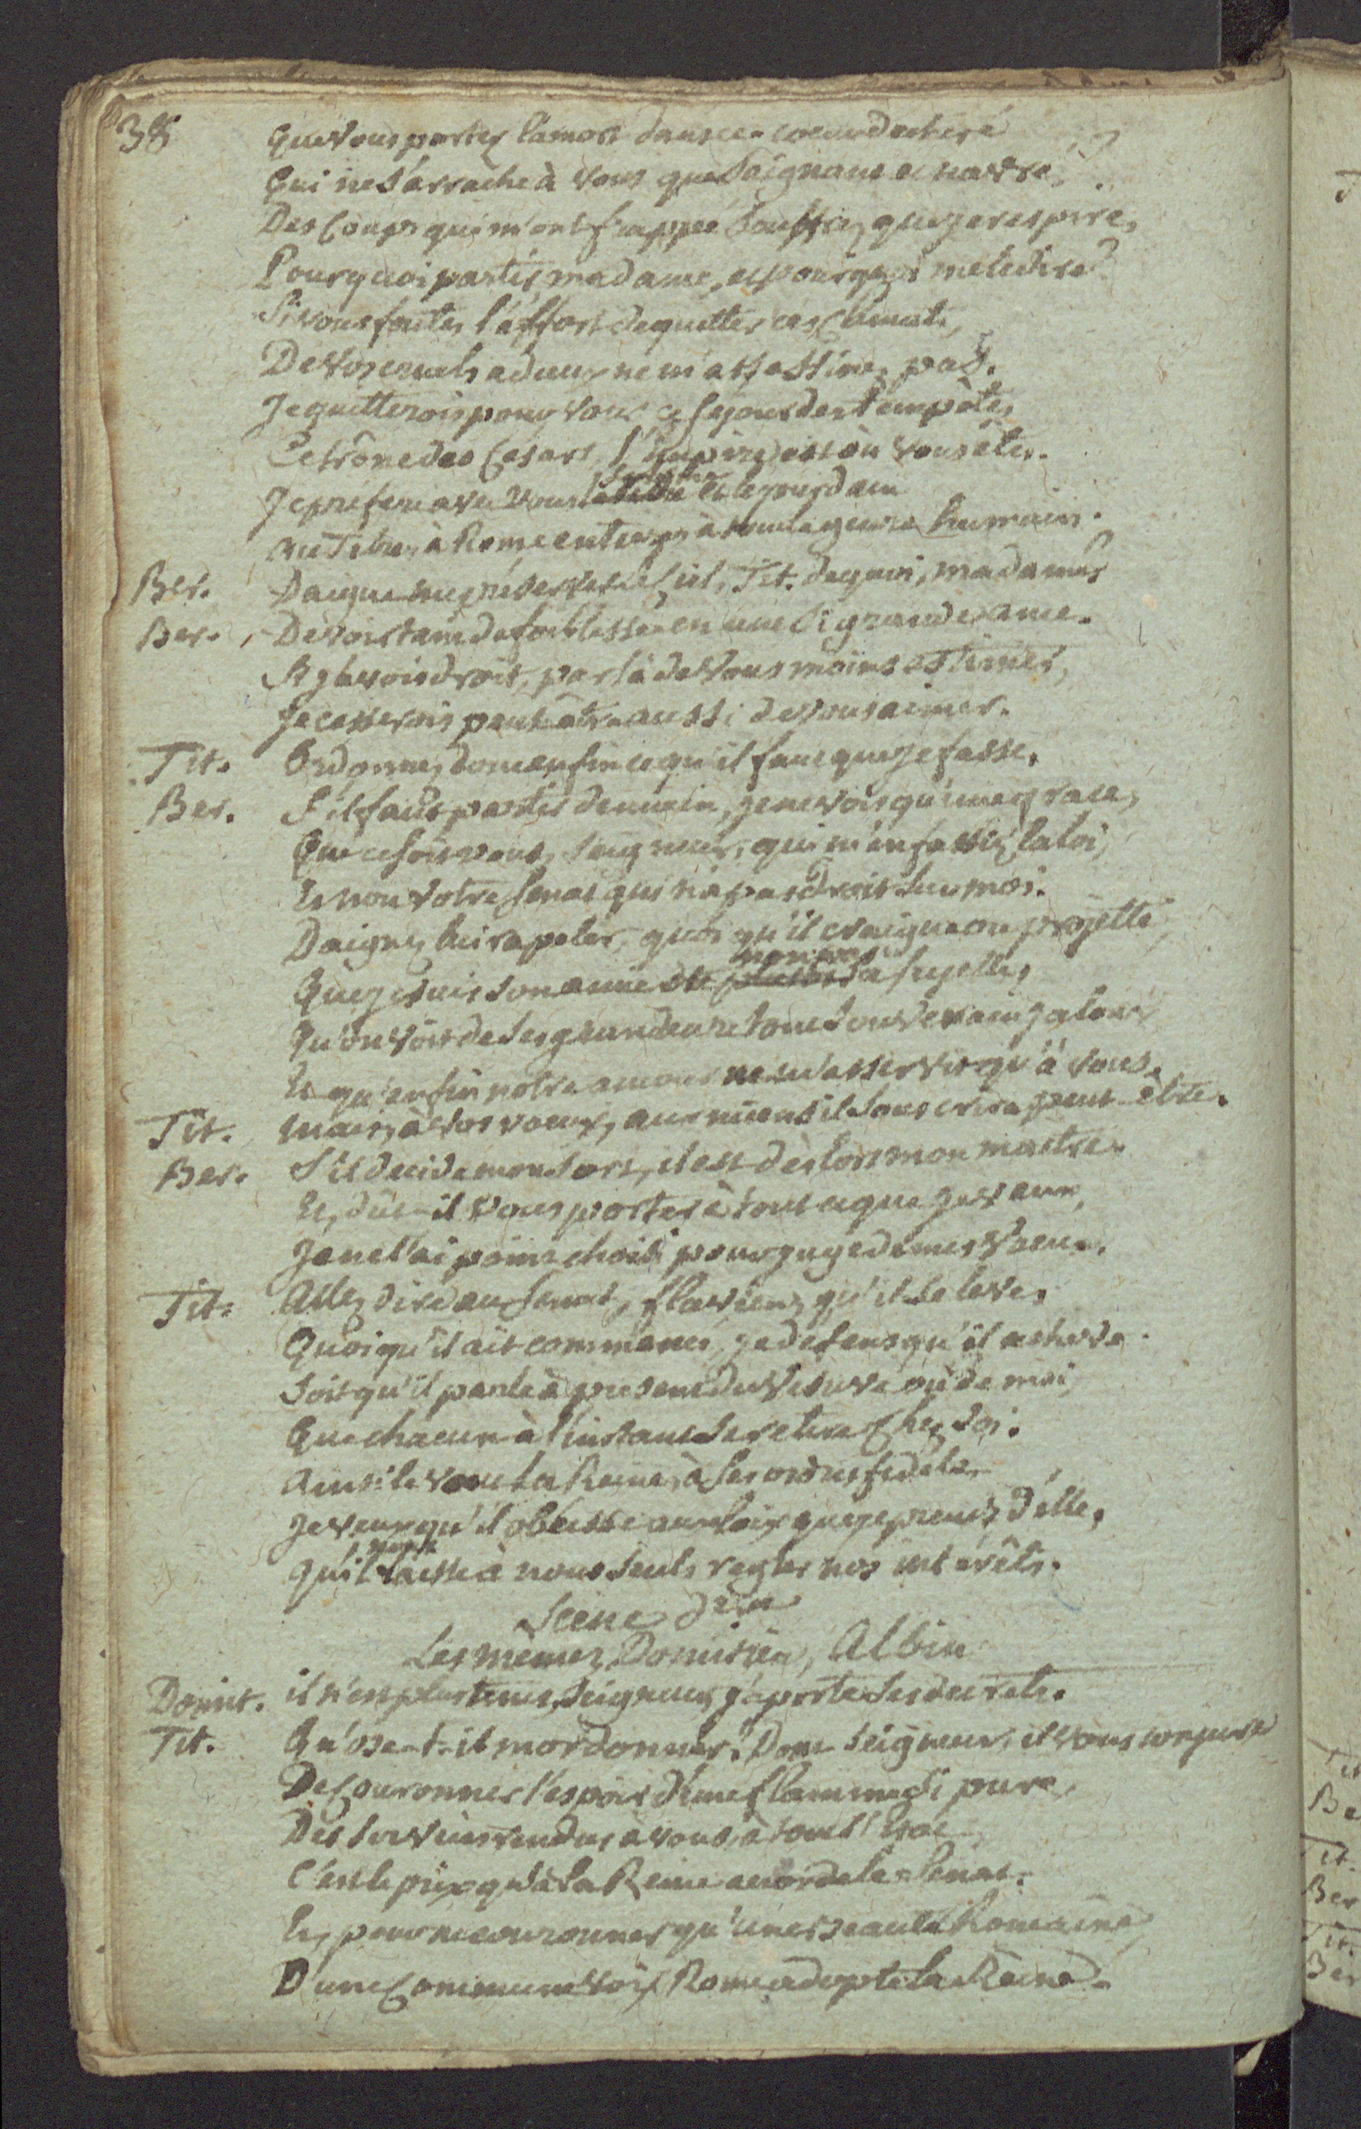 38
que vous portez la mort dans ce coeur dechiré
Qui ne s'arrache à vous que Saignant et navré.
Des Coups qui m'ont frappée Souffrez que je respire,
Pourquoi partir, madame, et pourquoi me le dire?
Si vous faites l'effort de quitter ces Climats,
De vos cruels adieux ne m'assassinez pas.
Je quitterois pour vous ce sejour des tempêtes,
Le trône des Cesars, l'Empire est où vous êtes.
Je prefere avec vous et le jourdain
au Tibre, à Rome entiere, à tout le genre humain.
Ber. Daigne me préserver le Ciel, Tit. de quoi, madame?
Ber. De voir tant de foiblesse en une si grande ame.
Si j'avois droit, par là de vous moins estimer,
Je cesserois peut être aussi de vous aimer.
Tit. Ordonnez donc enfin ce qu'il faut que je fasse.
Ber. S'il faut partir demain, je ne vois qu'une grace,
Que ce soit vous, Seigneur, qui m'en fassiez la loi,
Et non votre Senat qui n'a pas droit sur moi.
Daignez lui rapeler, quoi qu'il craigne ou projette
Que je suis son amie et non pas sa sujette,
Qu'on voit de ses grandeurs tout Souverain jaloux
Et qu'enfin notre amour ne m'asservit qu'à vous.
Tit. mais, à vos voeux, aux miens il souscrira peut-être.
Ber. S'il decide mon sort, il est dès lors mon maitre.
Et, dût-il vous porter à tout ce que je veux,
Je ne l'ai point choisi pour juge de mes voeux.
Tit. Allez dire au Senat, flavien, qu'il se leve,
Quoiqu'il ait commencé, je defens qu'il acheve.
Soit qu'il parle à present du Vesuve ou de moi,
Que chacun à l'instant se retire Chez soi.
ainsi le veut la Reine, à ses ordres fidele,
je veux qu'il obéisse aux loix que je prens d'elle,
qu'il laisse à nous seuls regler nos intérêts.
Scene
Les mêmes, Domitien, Albin
Domit. il n'en plus tems, Seigneur, j'aporte ses decrets.
Tit. Qu'ose-t-il m'ordonner? Dom. Seigneur, il vous conjure
De Couronner l'espoir d'une flamme si pure,
Des services rendus à vous, à tout l'état,
C'est le prix qu'à la Reine acorde le Senat.
Et, pour ne couronner qu'une beauté Romaine,
D'une Commune voix Rome adopte la Reine.
Tit
Be
Tit.
Ber
Tit.
Ber